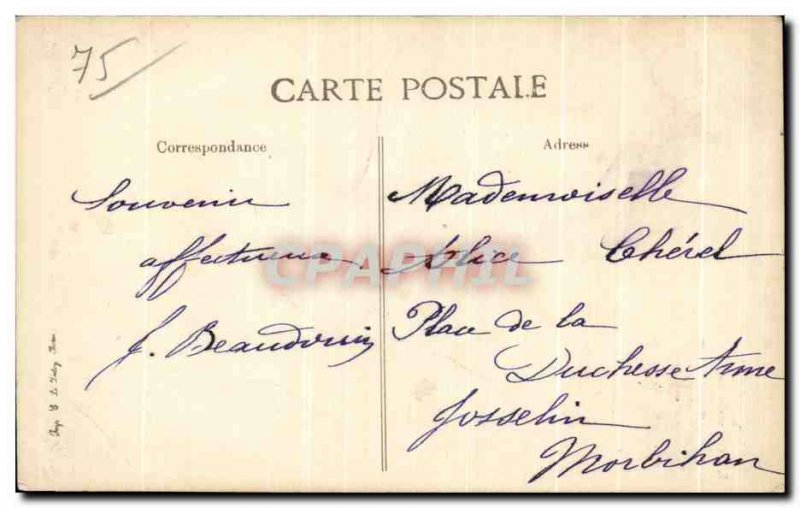 75
CARTE POSTALE
Correspondance
Adresse
Souvenir
affectueux
J. Beaudouin
Mademoiselle
Alice Chérel
Place de la
Duchesse Anne
Josselin
Morbihan
CPAPHIL